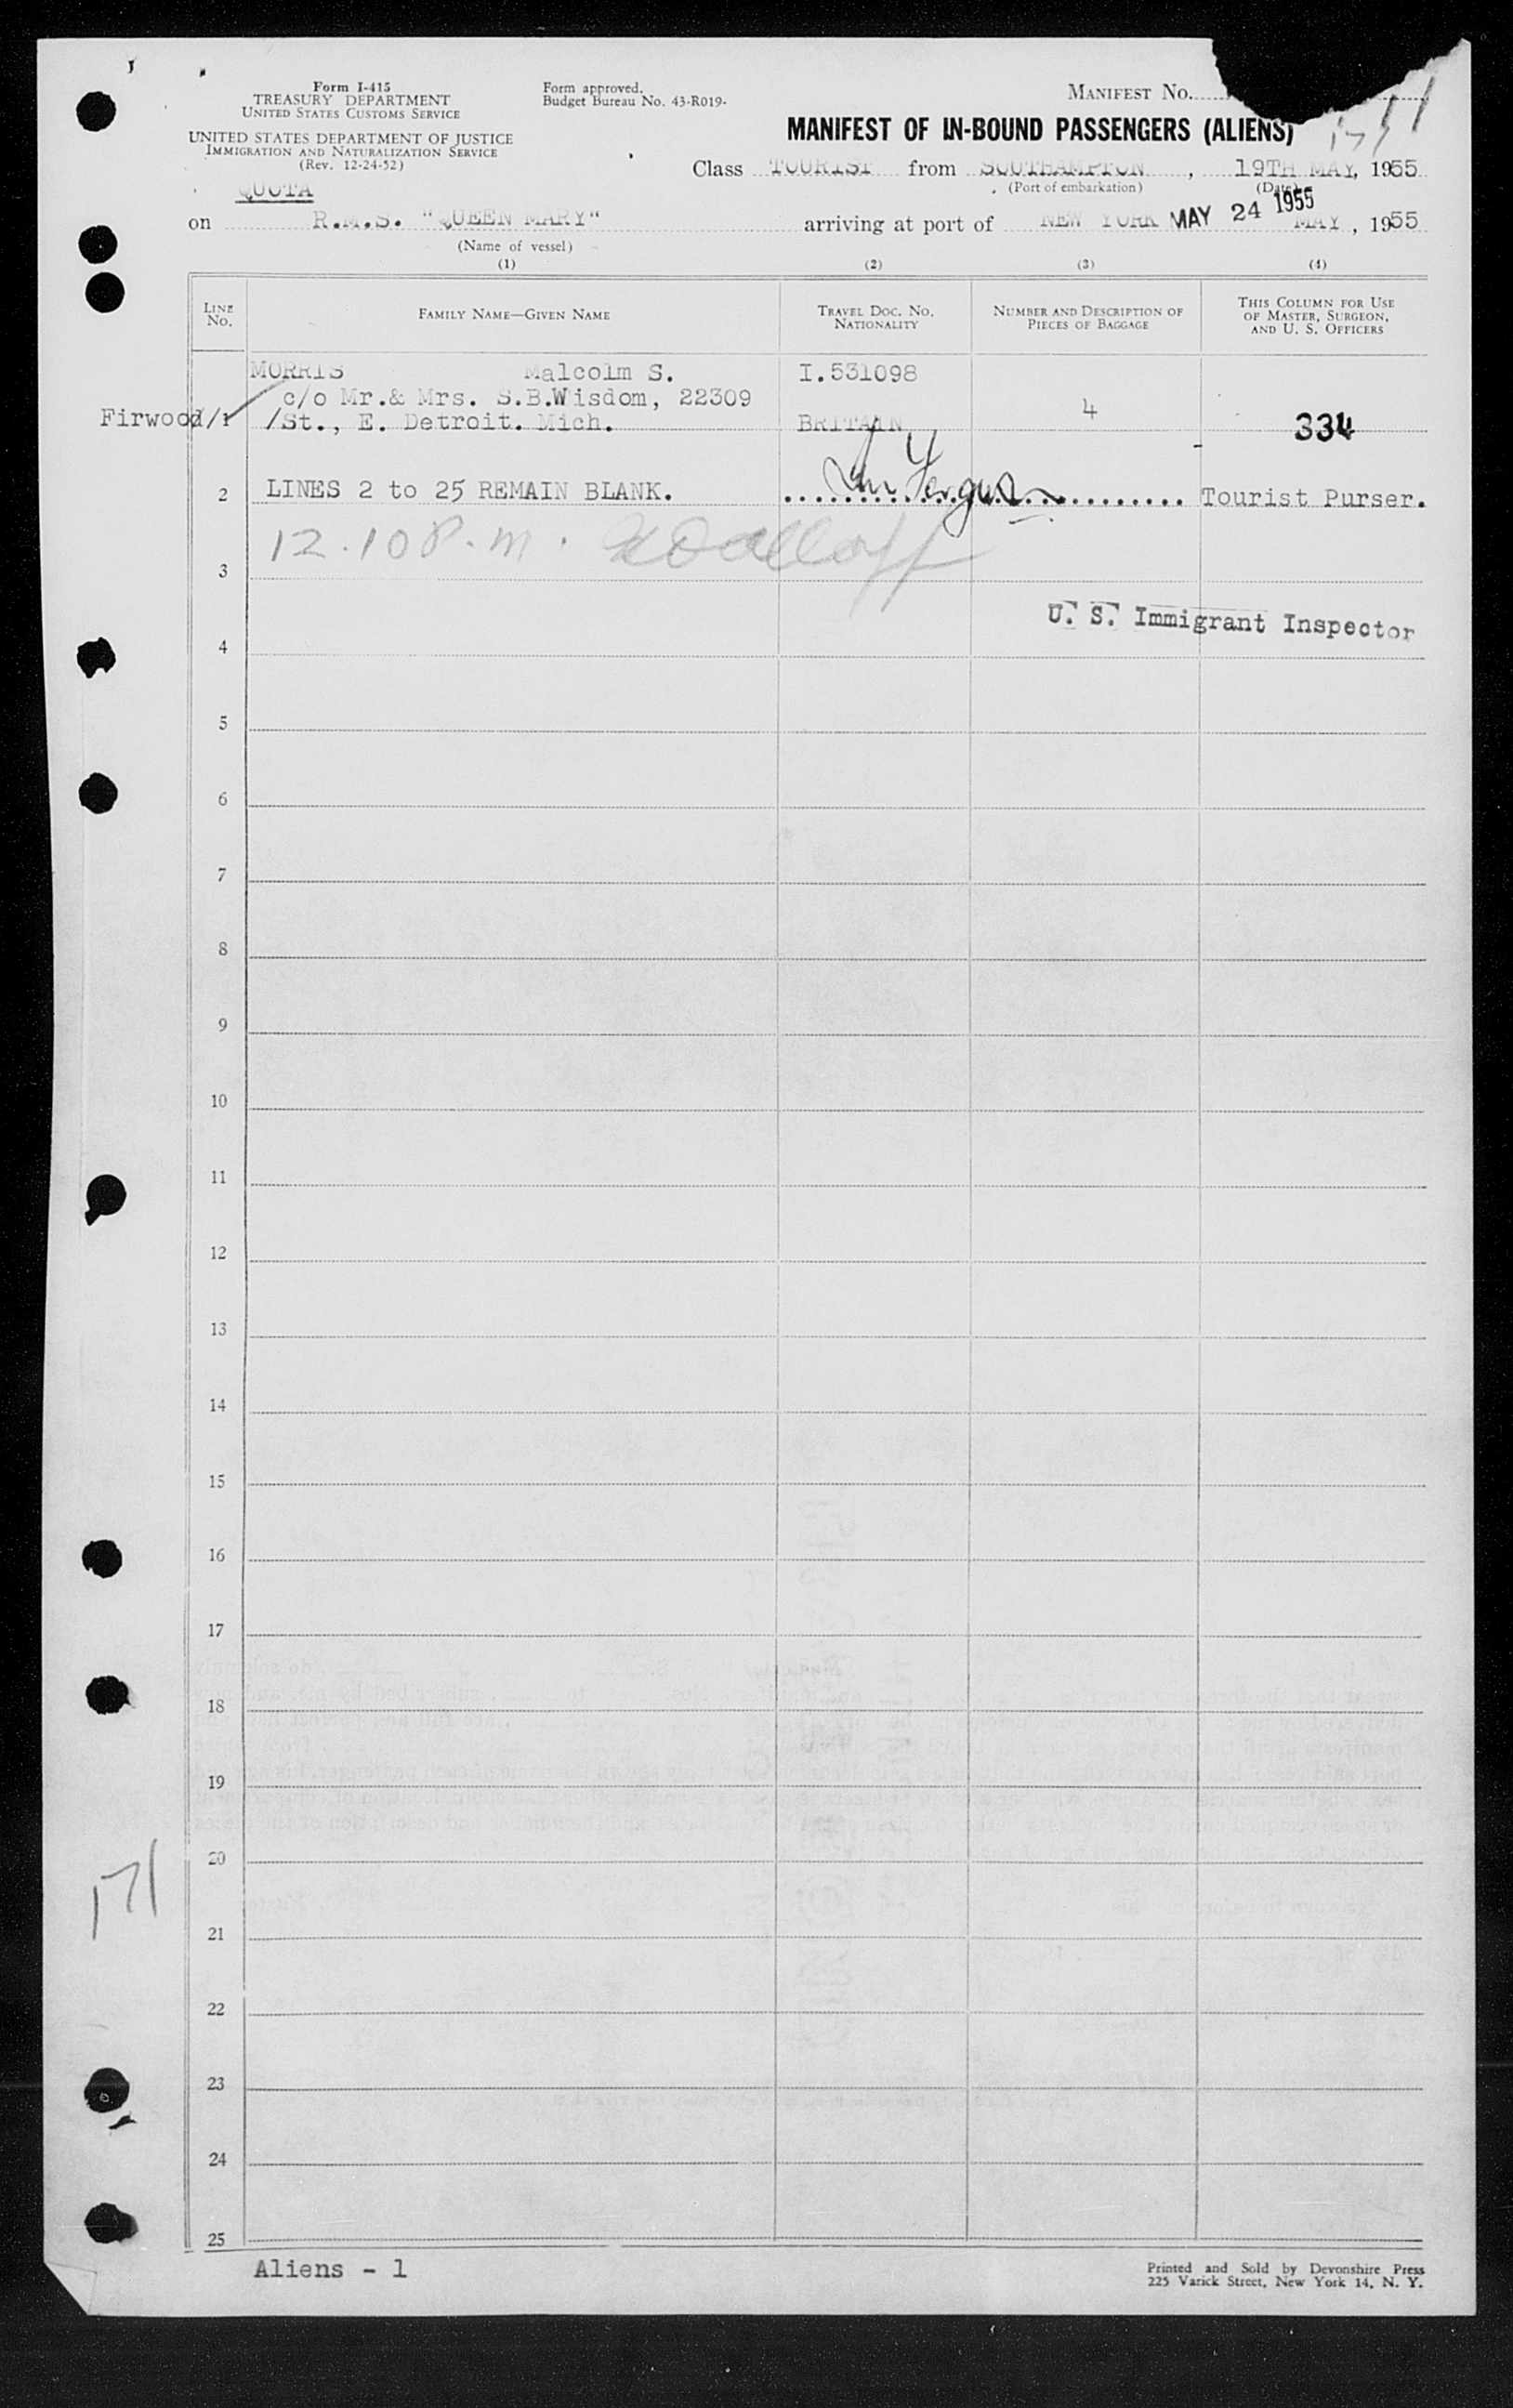 Form I-415
TREASURY DEPARTMENT
UNITED STATES CUSTOMS SERVICE
UNITED STATES DEPARTMENT OF JUSTICE
IMMIGRATION AND NATURALIZATION SERVICE
(Rev. 12-24-52)
Form approved.
Budget Bureau No. 43-R019-
MANIFEST NO.
MANIFEST OF IN-BOUND PASSENGERS (ALIENS)
Class TOURIST from SOUTHAMPTON, 19TH MAY, 1955
(Port of embarkation) (Date)
QUOTA
on R.M.S. "QUEEN MARY" arriving at port of NEW YORK MAY 24 1955 MAY, 1955
(Name of vessel)
(1) (2) (3) (4)
LINE NO. FAMILY NAME—GIVEN NAME TRAVEL DOC. NO. NATIONALITY NUMBER AND DESCRIPTION OF PIECES OF BAGGAGE THIS COLUMN FOR USE OF MASTER, SURGEON, AND U. S. OFFICERS
MORRIS Malcolm S. I.531098
c/o Mr.& Mrs. S.B.Wisdom, 22309 4
Firwood/1 /St., E. Detroit. Mich. BRITAIN 334
2 LINES 2 to 25 REMAIN BLANK. Tourist Purser.
12.10 P.m.
3
U. S. Immigrant Inspector
4
5
6
7
8
9
10
11
12
13
14
15
16
17
18
19
20
171
21
22
23
24
25
Aliens - 1
Printed and Sold by Devonshire Press
225 Varick Street, New York 14, N. Y.